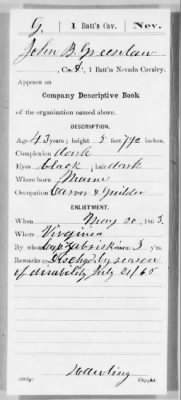 G. | 1 Batt'n Cav. | Nev.
John B Greenlaw
, Co. , 1 Batt'n Nevada Cavalry.
Appears on
Company Descriptive Book
of the organization named above.
DESCRIPTION.
Age 43 years; height 5 feet inches.
Complexion dark
Eyes black ; hair dark
Where born Maine
Occupation Carver & Guilder
ENLISTMENT.
When May 20 , 1863.
Where Virginia
By whom Capt Zabriskie ; term 3 y'rs.
Remarks: Dischg. by reason
of disability July 21/65
Copyist.